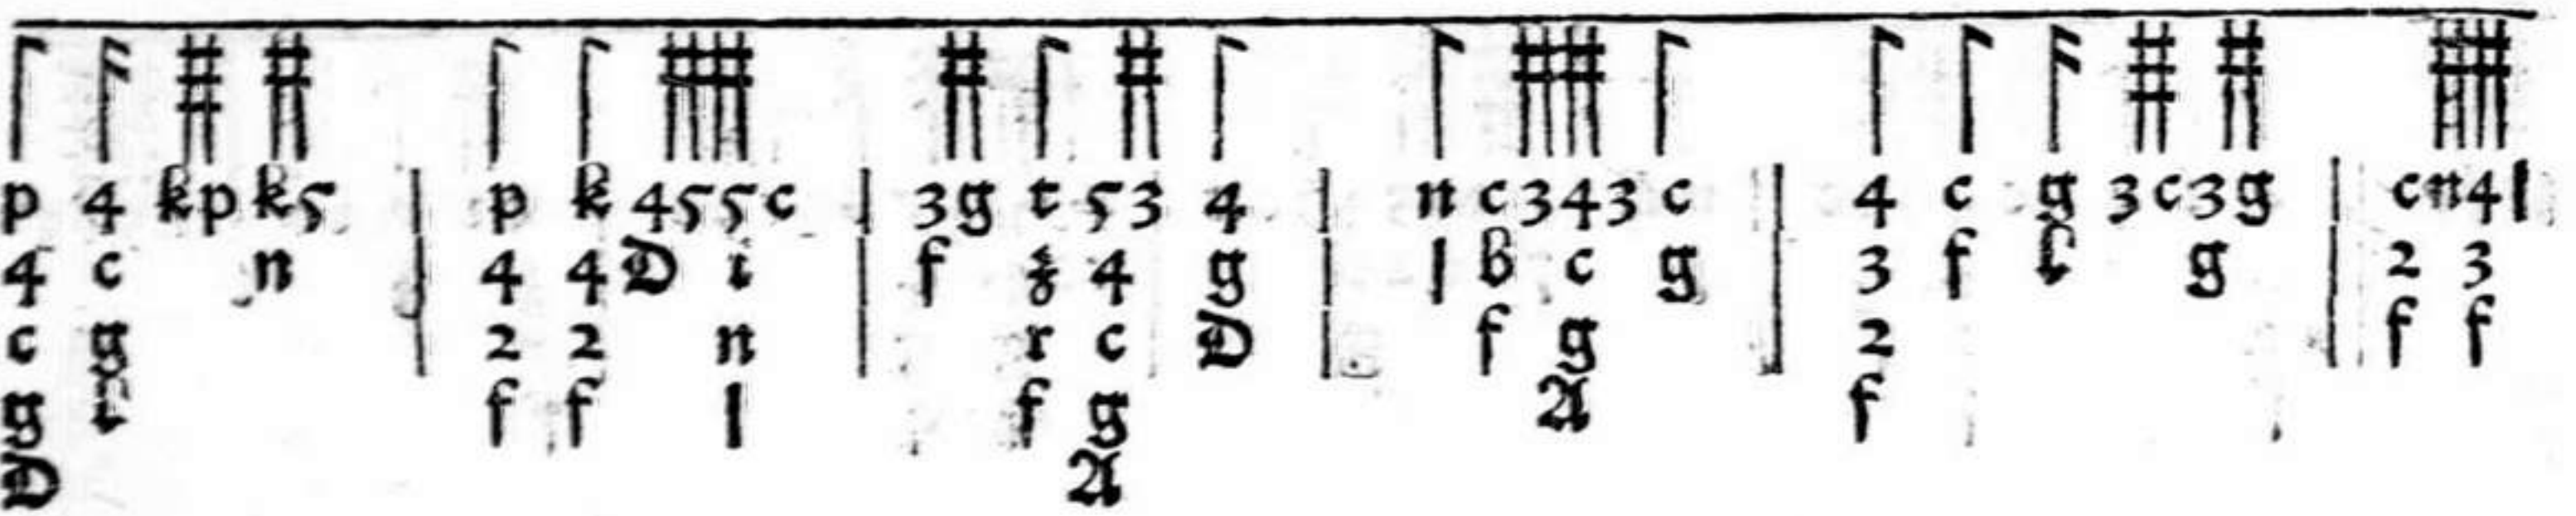 p 4 k p k 5 | p k 4 5 5 c | 3 g t 5 3 4 | n c 3 4 3 c | 4 c g 3 c 3 g | c n 4 l
4 c n | 4 4 D i | f 4 g | l b c g | 3 f g | 2 3
c g 2 2 n r c D f g 2 f f
g f f l f g A f
D A